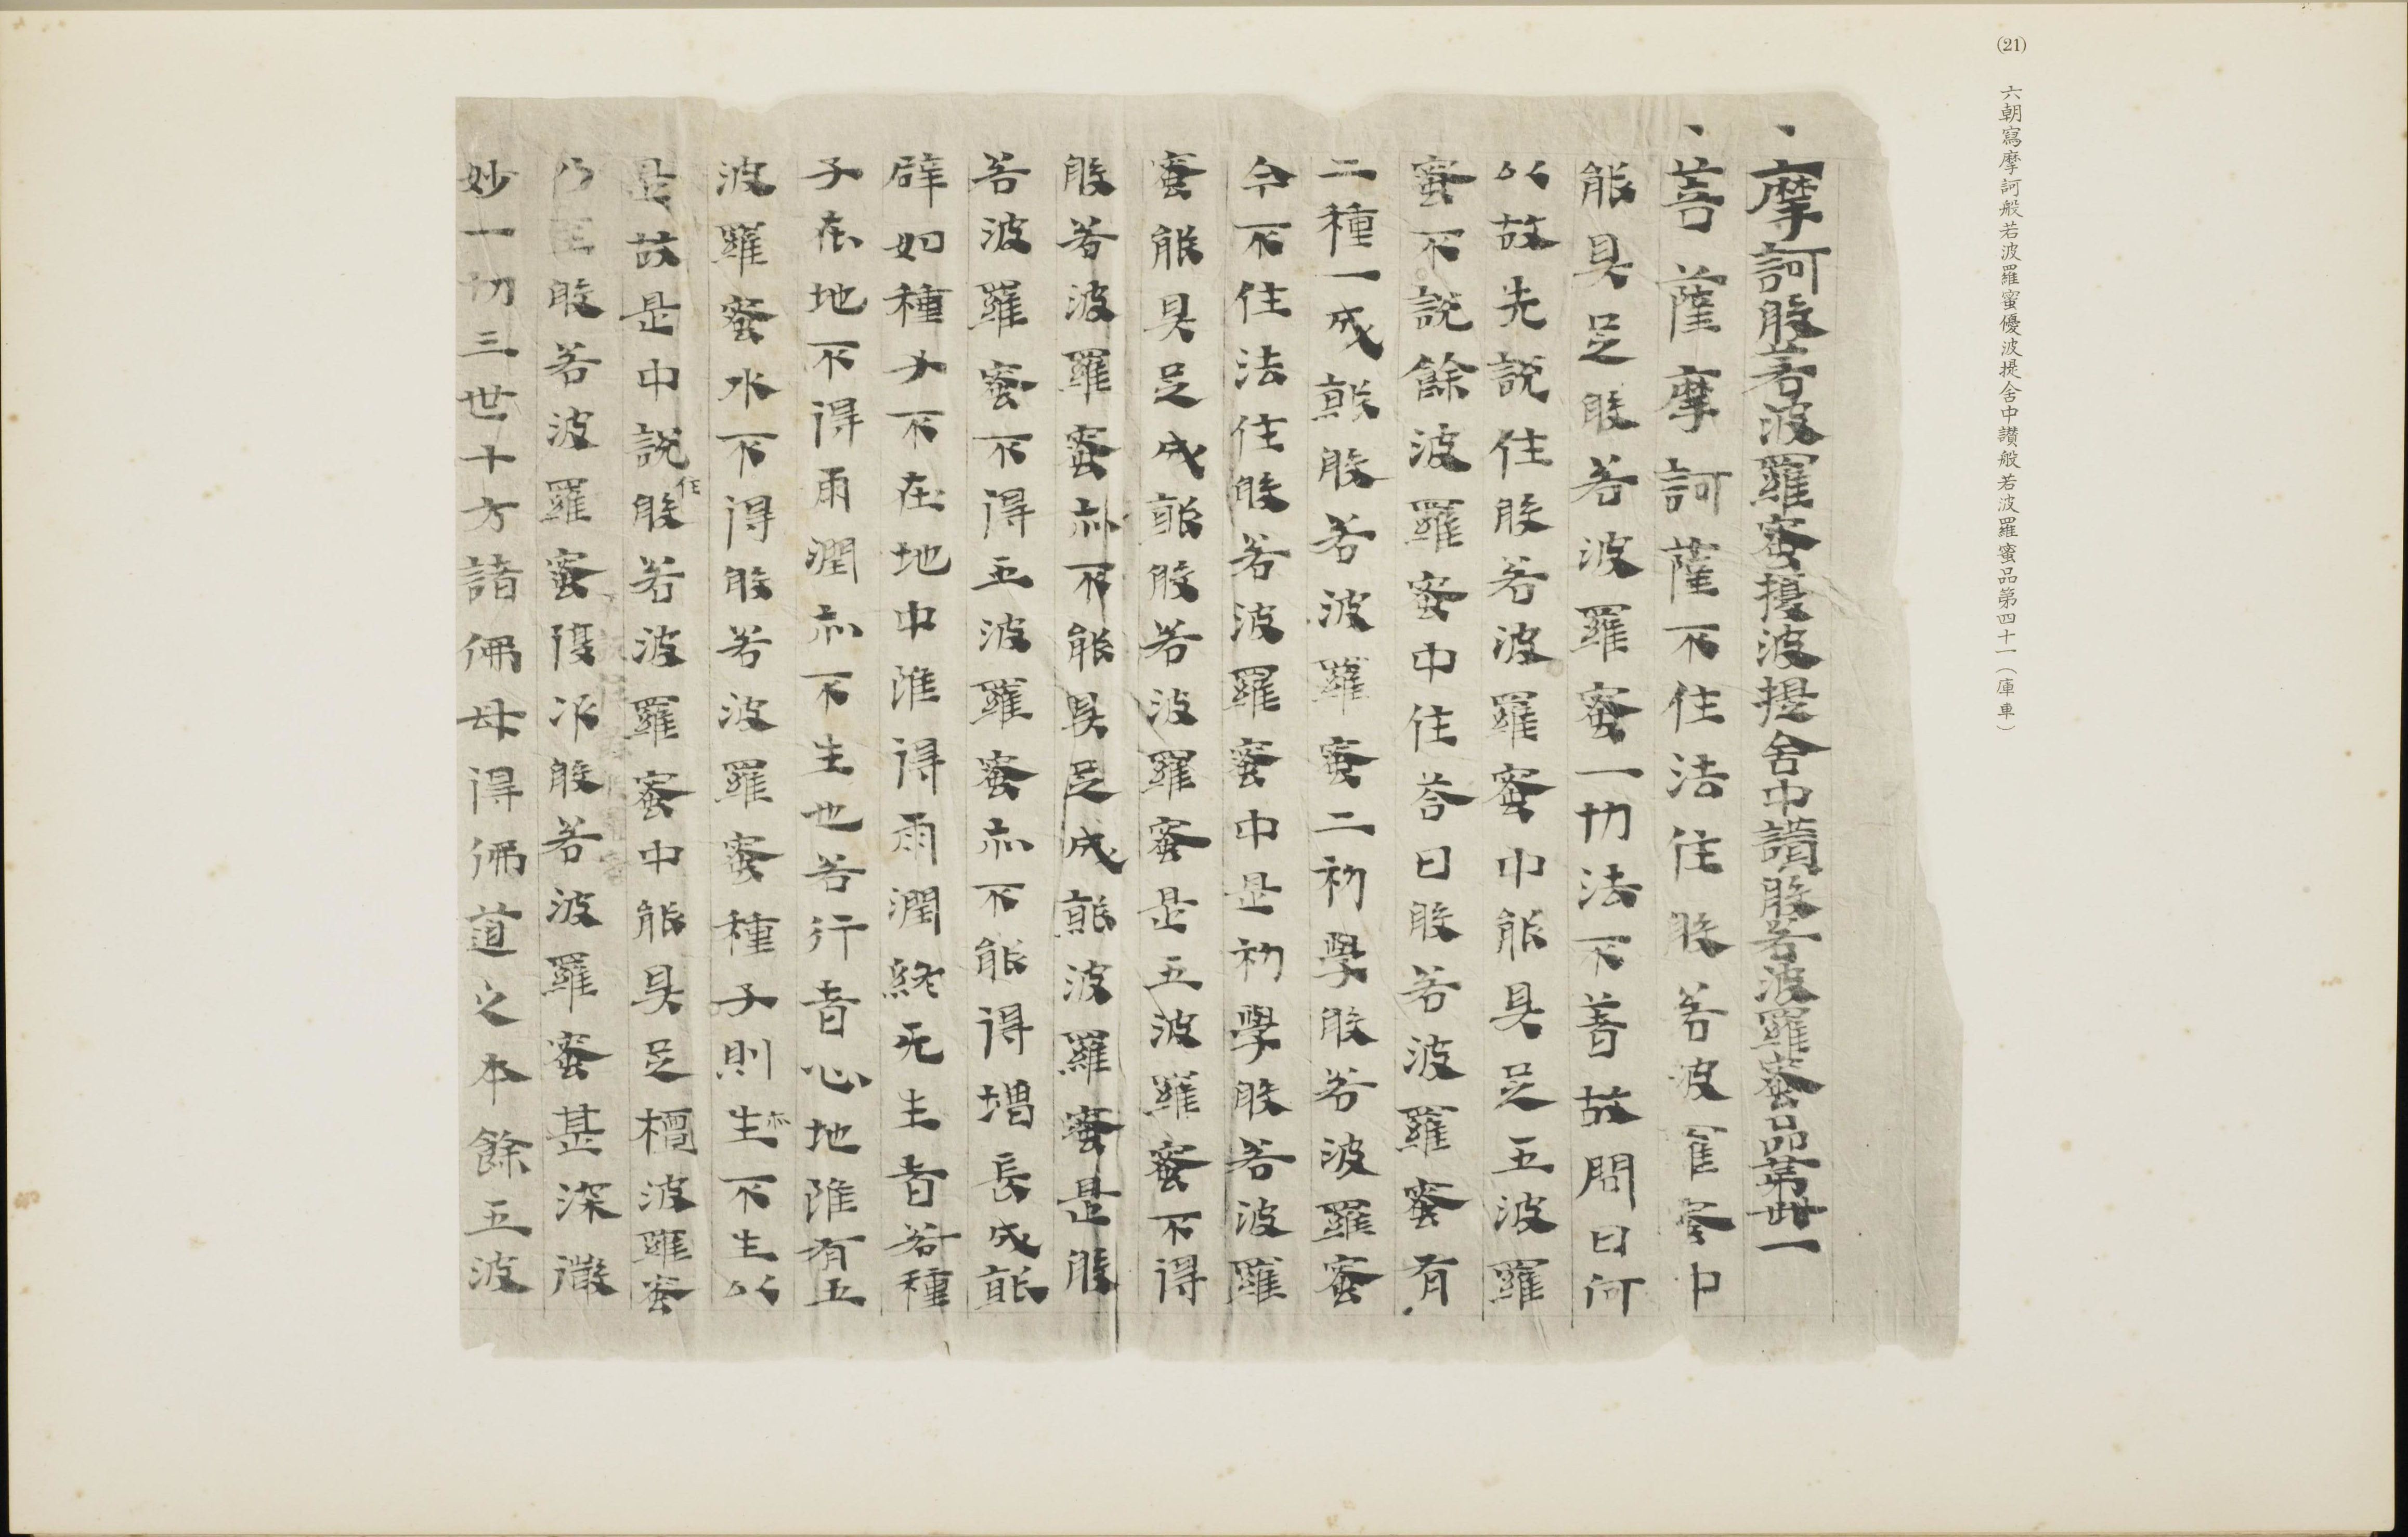 (21) 六朝寫摩訶般若波羅蜜優波提舍中讃般若波羅蜜品第四十一（庫車）
、摩訶般若波羅蜜擾波提舍中讃般若波羅蜜品第卌一
、菩薩摩訶薩不住法住般若波羅蜜中
能具足般若波羅蜜一切法不著故問曰何
以故先說住般若波羅蜜中能具足五波羅
蜜不說餘波羅蜜中住荅曰般若波羅蜜有
二種一成就般若波羅蜜二初學般若波羅蜜
今不住法住般若波羅蜜中是初學般若波羅
蜜能具足成就般若波羅蜜是五波羅蜜不得
般若波羅蜜亦不能具足成就波羅蜜是般
若波羅蜜不得五波羅蜜亦不能得增長成就
辟如種子不在地中唯得雨潤終无生者若種
子在地不得雨潤亦不生也若行者心地唯有五
波羅蜜水不得般若波羅蜜種子則生亦不生以
是故是中說住般若波羅蜜中能具足檀波羅蜜
乃至般若波羅蜜復次般若波羅蜜甚深微
妙一切三世十方諸佛母得佛道之本餘五波